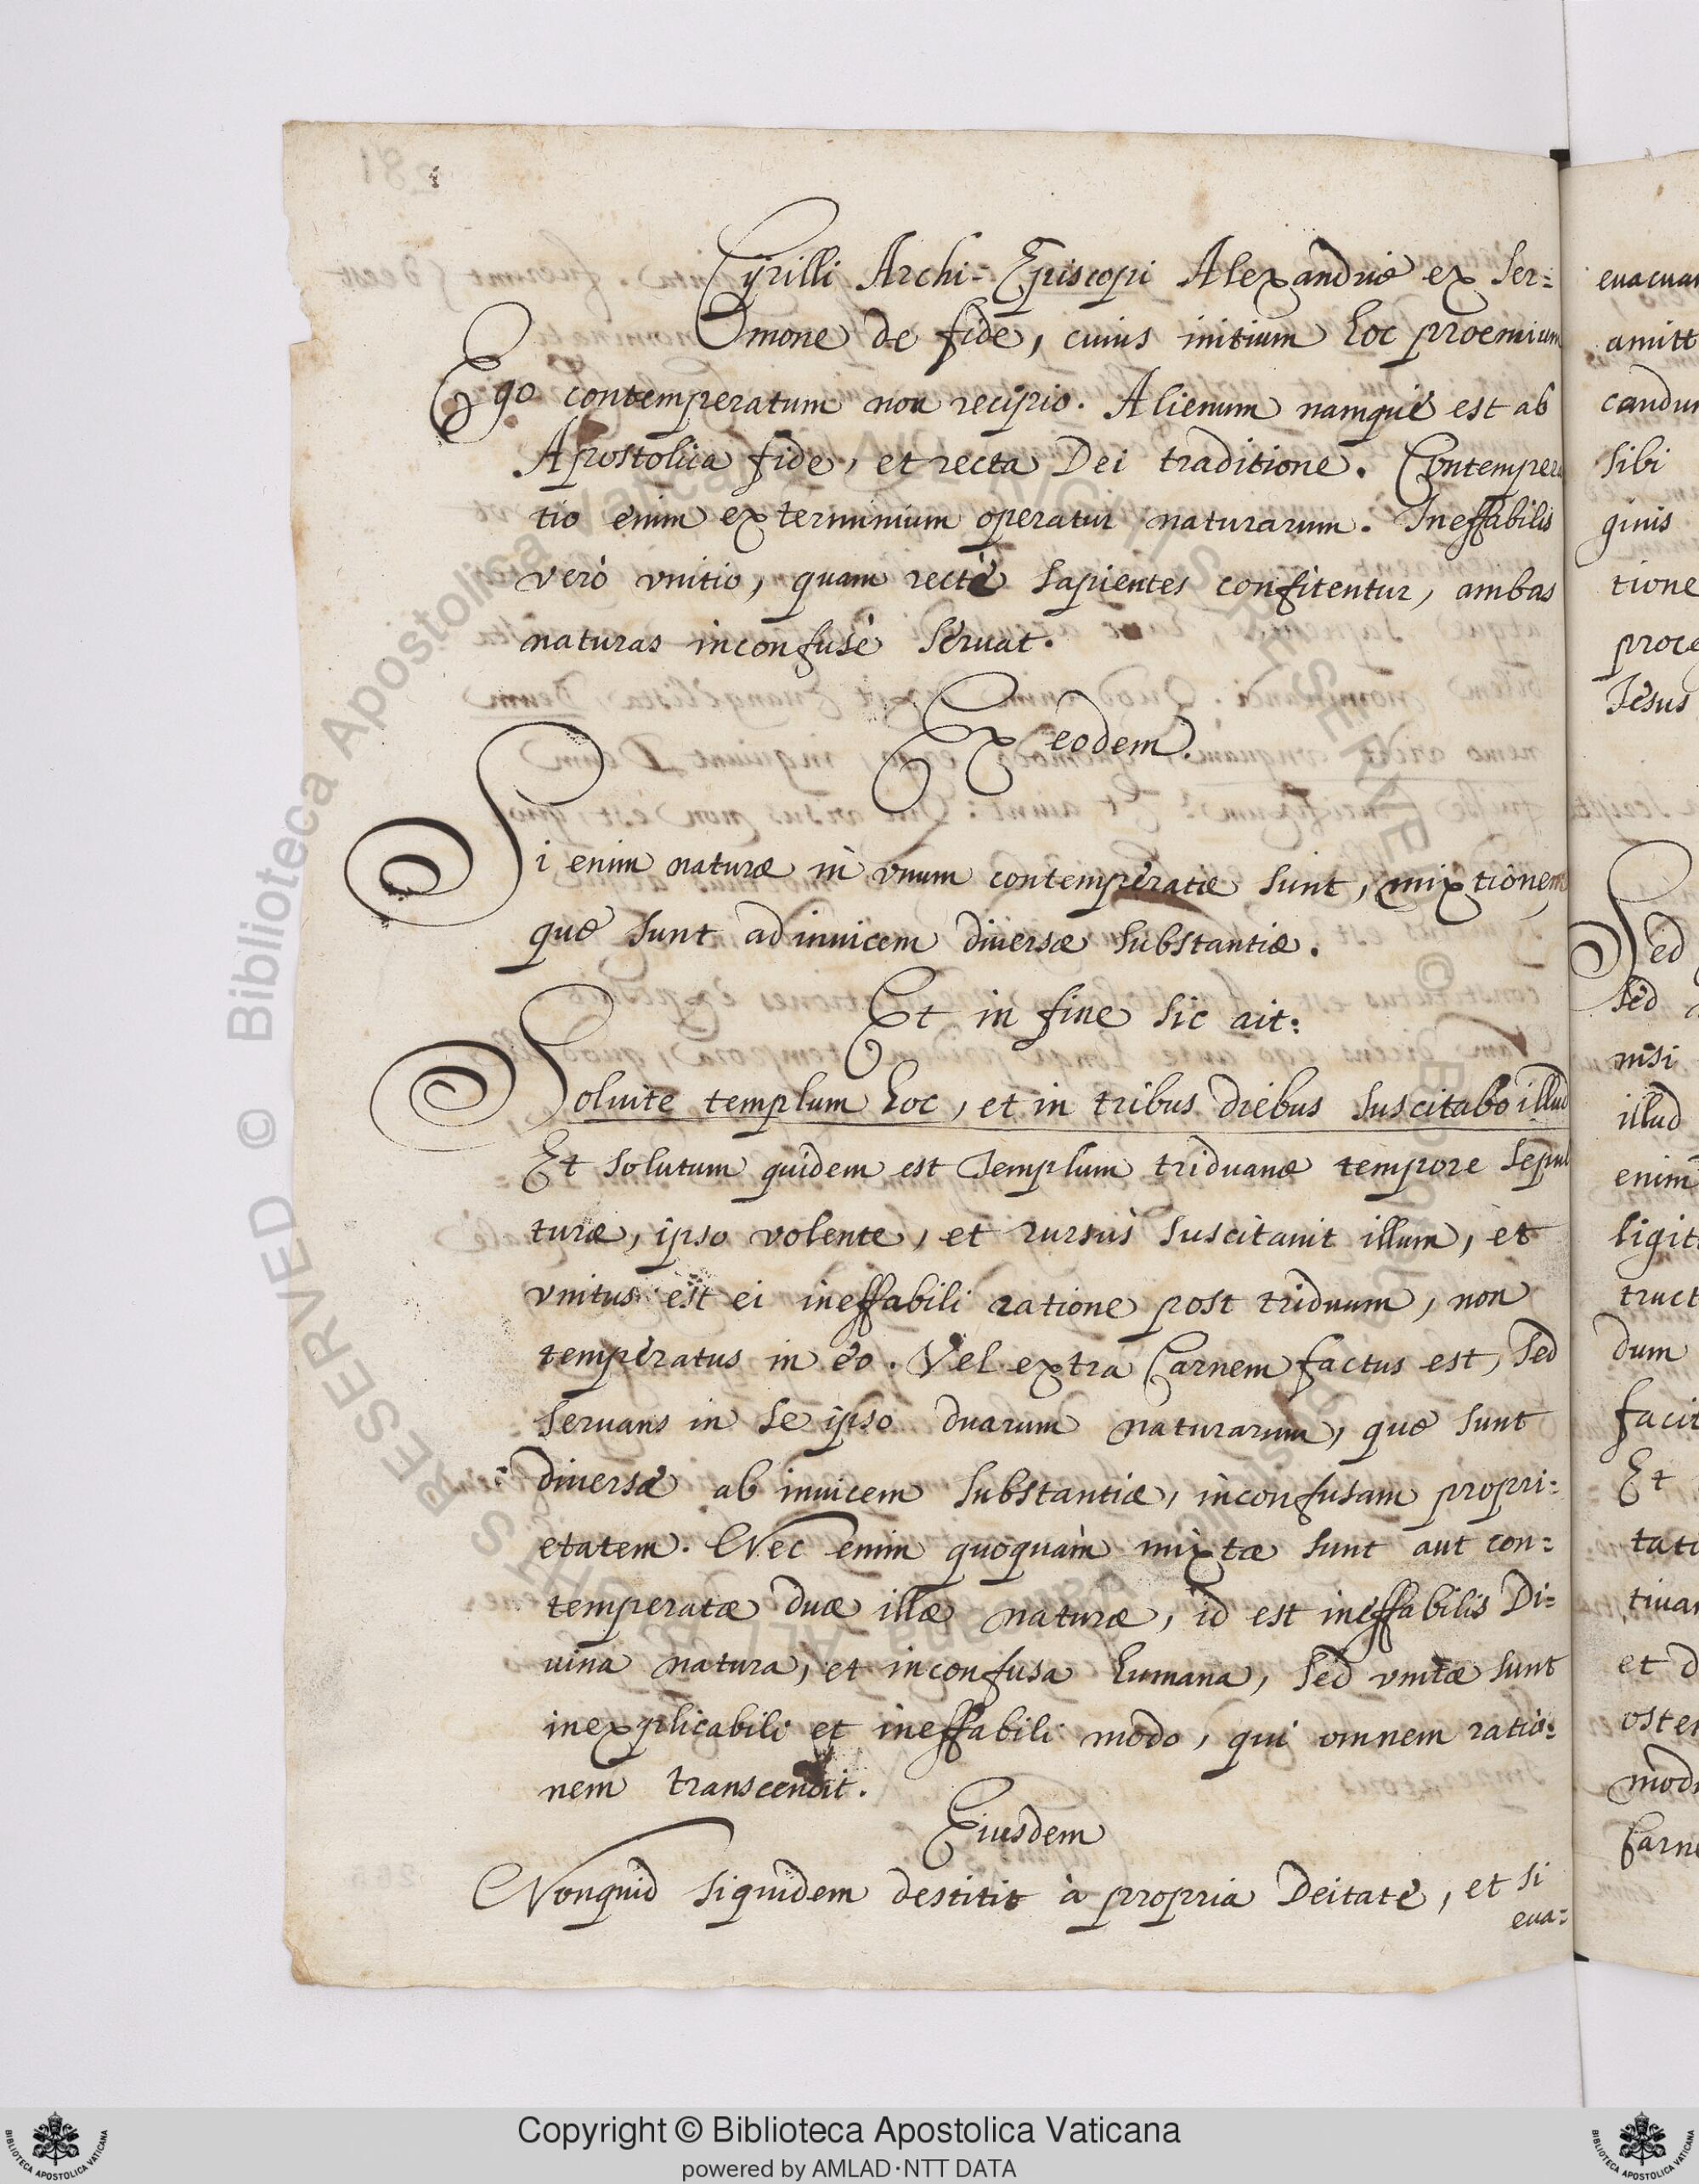 Cyrilli Archi-Episcopi Alexandriæ ex ser=
mone de fide, cuius initium hoc proemium
Ego contemperatum non recipio. Alienum namque est ab
Apostolica fide, et recta Dei traditione. Contempera
tio enim exterminium operatur naturarum. Ineffabilis
verò vnitio, quam rectè sapientes confitentur, ambas
naturas inconfusè seruat.
Ex eodem.
Si enim naturæ in vnum contemperatæ sunt, mixtionem
quæ sunt adinuicem diuersæ substantiæ.
Et in fine sic ait:
Soluite templum hoc, et in tribus diebus suscitabo illud
Et solutum quidem est Templum triduanæ tempore sepul
turæ, ipso volente, et rursùs suscitauit illum, et
vnitus est ei ineffabili ratione post triduum, non
temperatus in eo. Vel extra Carnem factus est, sed
seruans in se ipso duarum naturarum, quæ sunt
diuersæ ab inuicem substantiæ, inconfusam propri=
etatem. Nec enim quoquam mixtæ sunt aut con=
temperatæ duæ illæ naturæ, id est ineffabilis Di=
uina natura, et inconfusa humana, sed vnitæ sunt
inexplicabili et ineffabili modo, qui omnem ratio=
nem transcendit.
Eiusdem
Nonquid siquidem destitit à propria Deitate, et si
eua=
euacuar
amitt
candum
sibi
ginis
tione
proce
Jesus
Sed
sed
nisi
illud
enim
ligit
truct
dum
facit
Et
tate
tiuam
et d
osten
modu
Carne
© Biblioteca Apostolica Vaticana ALL RIGHTS RESERVED
Copyright © Biblioteca Apostolica Vaticana
powered by AMLAD·NTT DATA
BIBLIOTECA APOSTOLICA VATICANA
BIBLIOTECA APOSTOLICA VATICANA